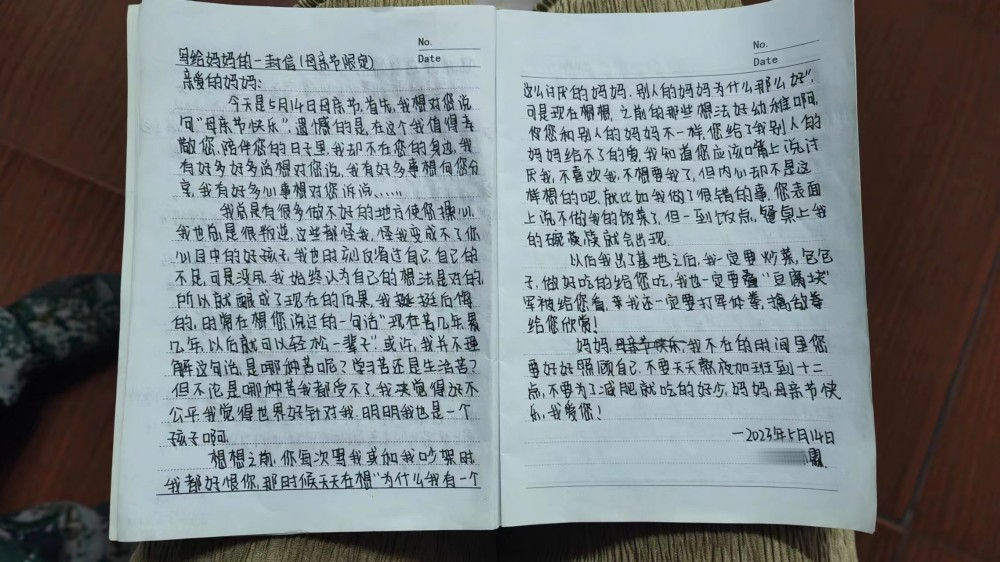 No.
Date
写给妈妈的一封信(母亲节限定)
亲爱的妈妈:
今天是5月14日母亲节,首先,我想对您说
句"母亲节快乐",遗憾的是,在这个我值得孝
敬您,陪伴您的日子里,我却不在您的身边,我
有好多好多话想对您说,我有好多事想向您分
享,我有好多心事想对您诉说......
我总是有很多做不好的地方使您操心,
我也总是很叛逆,这些都怪我,怪我变成不了你
心目中的好孩子,我也时刻反省过自己,自己的
不是,可是没用,我始终认为自己的想法是对的,
所以就酿成了现在的后果,我挺挺后悔
的,时常在想您说过的一句话"现在苦几年,累
几年,以后就可以轻松一辈子",或许,我并不理
解这句话,是哪种苦呢?学习苦还是生活苦?
但不论是哪种苦我都受不了,我觉得好不
公平,我觉得世界好针对我,明明我也是一个
孩子啊,
想想之前,你每次骂我或和我吵架时,
我都好恨你,那时候天天在想"为什么我有一个
No.
Date
这么讨厌的妈妈,别人的妈妈为什么那么好",
可是现在想想,之前的那些想法好幼稚啊,
你您和别人的妈妈不一样,您给了我别人的
妈妈给不了的爱,我知道您应该嘴上说讨
厌我,不喜欢我,不想要我了,但内心却不是这
样想的吧,就比如我做了很错的事,您表面
上说不做我的饭菜了,但一到饭点,餐桌上我
的碗筷就会出现.
以后我出了基地之后,我一定要炒菜,包包
子,做好吃的给您吃,我也一定要叠"豆腐块"
军被给您看,我还一定要打军体拳,擒敌拳
给您欣赏!
妈妈,母亲节快乐,我不在的时间里您
要好好照顾自己,不要天天熬夜加班到十二
点,不要为了减肥就吃的好少,妈妈,母亲节快
乐,我爱您!
—2023年5月14日